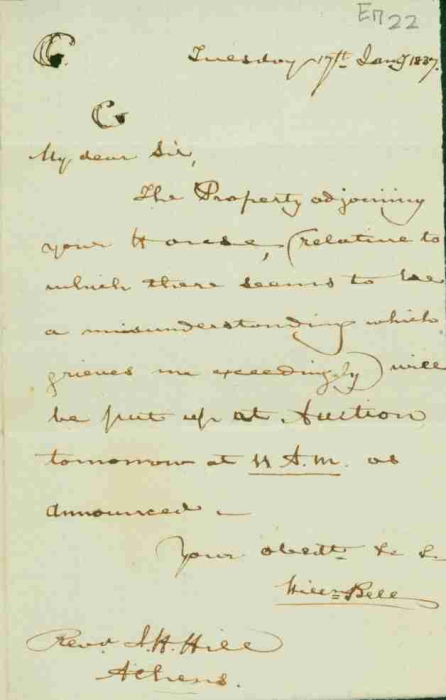 Em 22
Tuesday 17th Jany 1837.
My dear Sir,
The Property adjoining
your House, (relative to
which there seems to be
a misunderstanding which
grieves me exceedingly) will
be put up at Auction
tomorrow at 11 A.M. as
announced –
Your obedt &c &c
Bell
Revd. J.H. Hill
Athens.